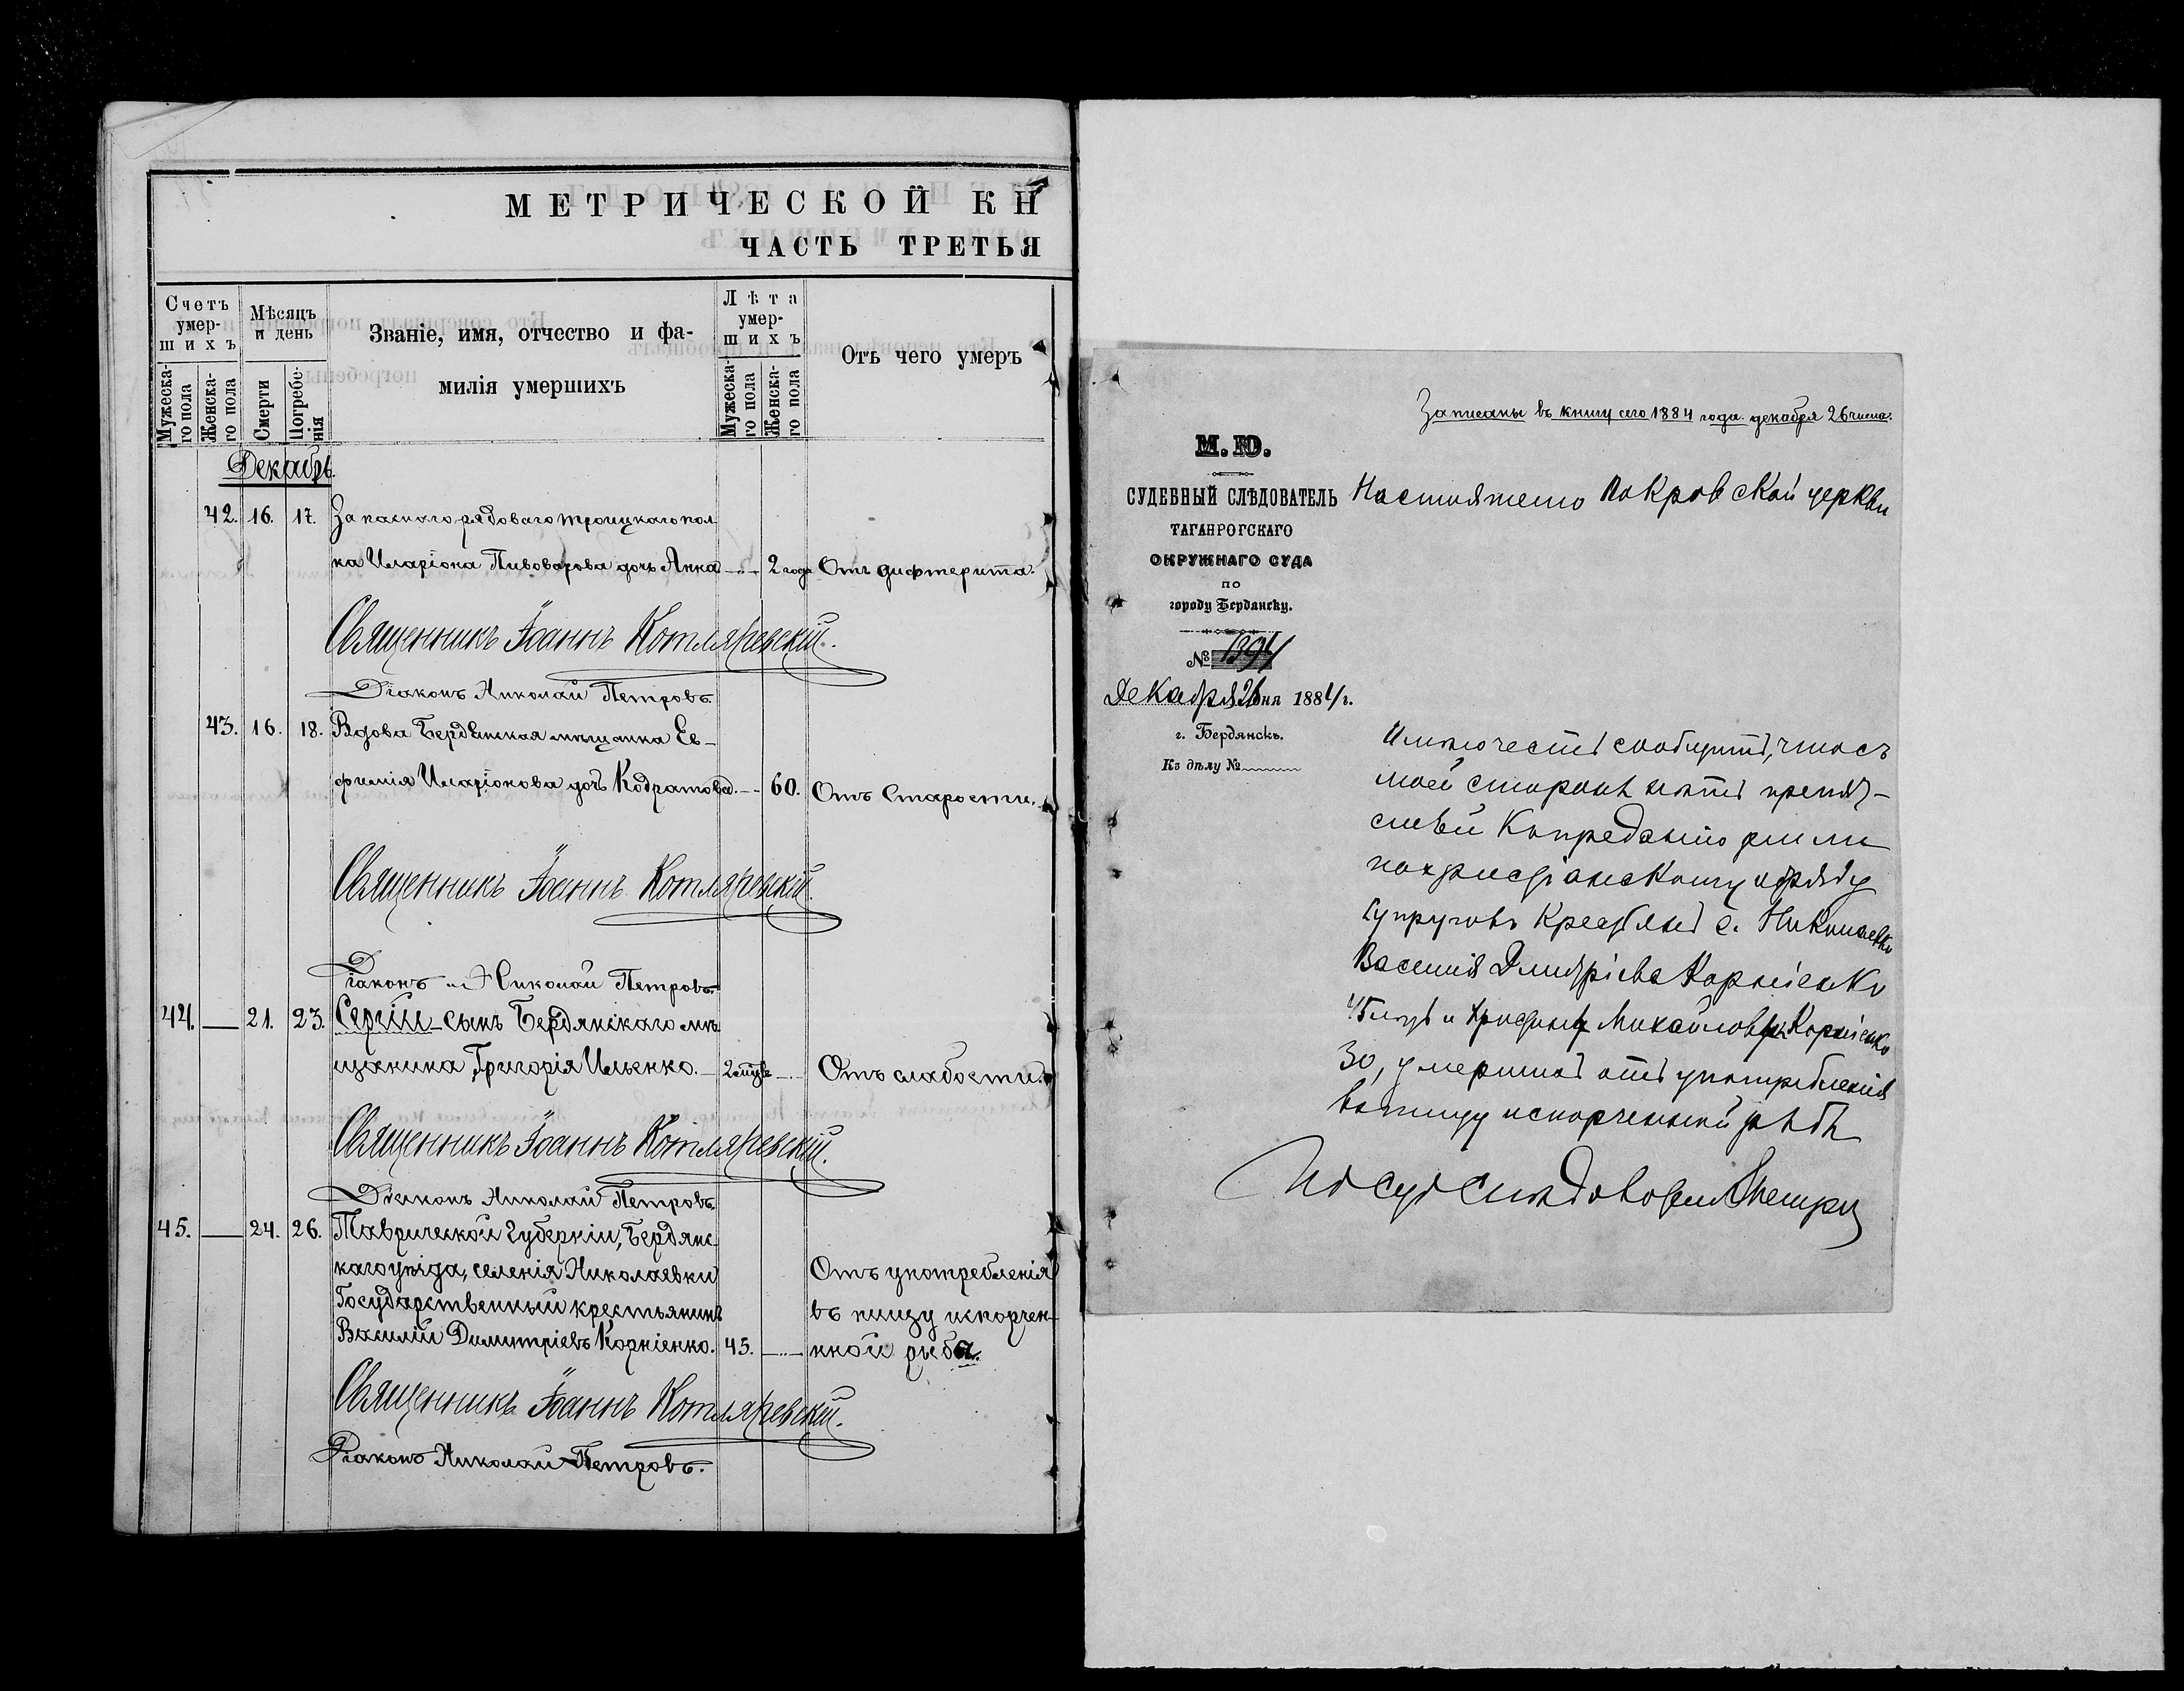 МЕТРИЧЕСКОЙ КН
ЧАСТЬ ТРЕТЬЯ
Счетъ умер-
шихъ
Мужеска-
го пола
Женска-
го пола
Мѣсяцъ
и день
Смерти
Погребе-
нія
Званіе, имя, отчество и фа-
милія умершихъ
Лѣта
умер-
шихъ
Мужеска-
го пола
Женска-
го пола
Отъ чего умеръ
Декабрь.
42. 16. 17. Запаснаго рядоваго Троицкаго пол
ка Иларіона Пивоварова дочь Анна 2 года Отъ дифтерита.
Священникъ Іоаннъ Котляревскій.
Діаконъ Николай Петровъ.
43. 16. 18. Вдова Бердянская мѣщанка Ев-
фимія Иларіонова дочь Кодратова. 60. Отъ Старости.
Священникъ Іоаннъ Котляревскій.
Діаконъ Николай Петровъ.
44. 21. 23. Сергій сынъ Бердянскаго мѣ
щанина Григорія Ильенко. Отъ слабости.
Священникъ Іоаннъ Котляревскій.
Діаконъ Николай Петровъ.
45. 24. 26. Таврической Губерніи, Бердянс
каго уѣзда, селенія Николаевки
Государственный крестьянинъ
Василій Димитріевъ Корніенко. 45.
Отъ употребленія
въ пищу испорчен-
нной рыба.
Священникъ Іоаннъ Котляревскій.
Діаконъ Николай Петровъ.
Записаны въ книгу сего 1884 года декабря 26 числа.
М. Ю.
СУДЕБНЫЙ СЛѢДОВАТЕЛЬ
ТАГАНРОГСКАГО
ОКРУЖНАГО СУДА
ПО
городу Бердянску.
№ 1394
Декабря 26 дня 1884 г.
г. Бердянскъ.
Къ дѣлу №
Настоятелю Покровской церкви
Имѣю честь сообщить, что съ
моей стороны нѣтъ препят-
ствій к преданію земли
по христіанскому обряду
супруговъ крестьянъ с. Николаевки
Василія Дмитріева Корніенко
45 лѣтъ и Христины Михайловны Корніенко
30, умершихъ отъ употребленія
въ пищу испорченной рыбы